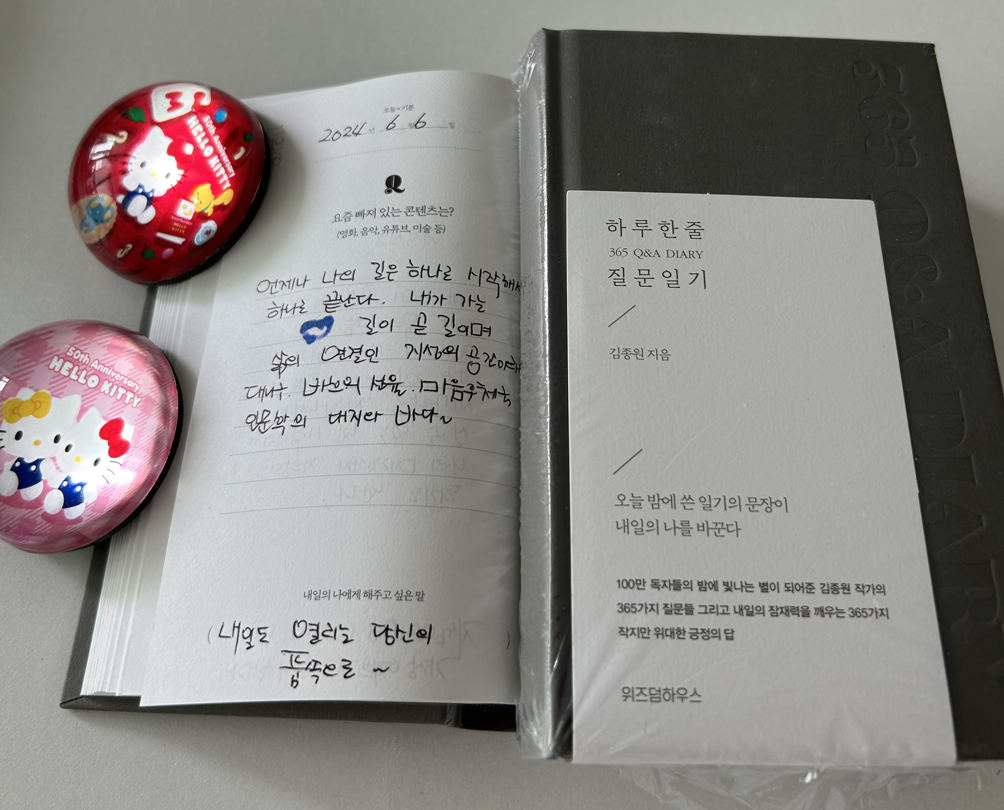 50th Anniversary
HELLO KITTY
50th Anniversary
HELLO KITTY
오늘의 기분
2024년 6월 6일
Q
요즘 빠져 있는 콘텐츠는?
(영화, 음악, 유튜브, 미술 등)
언제나 나의 길은 하나로 시작해서
하나로 끝난다. 내가 가는
길이 곧 길이며
삶의 연결인 지성의 공간이
대나. 바흐의 선율.마음
인문학의 대지와 바다~
내일의 나에게 해주고 싶은 말
(내일도 열리는 당신의 )
품속으로 ~
하루 한 줄
365 Q&A DIARY
질문 일기
김종원 지음
오늘 밤에 쓴 일기의 문장이
내일의 나를 바꾼다
100만 독자들의 밤에 빛나는 별이 되어준 김종원 작가의
365가지 질문들 그리고 내일의 잠재력을 깨우는 365가지
작지만 위대한 긍정의 답
위즈덤하우스
365 Q&A DIARY